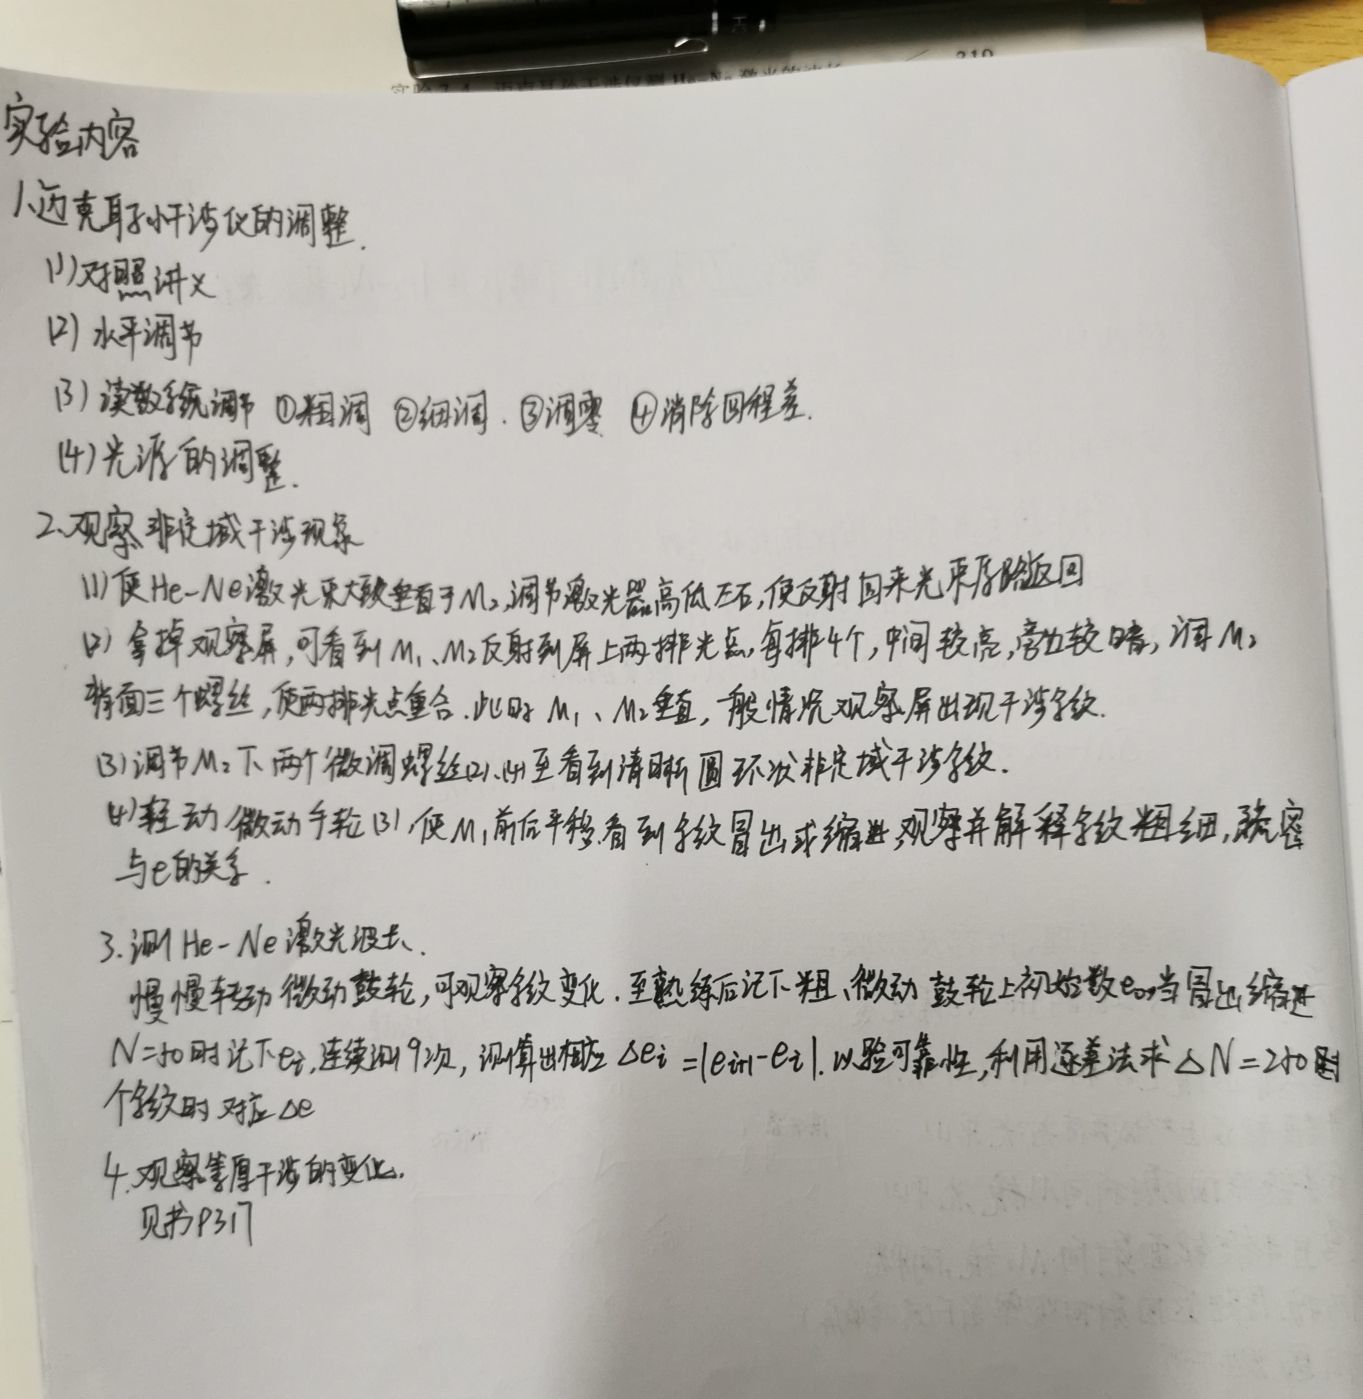 319
实验内容
1、迈克耳孙干涉仪的调整.
(1)对照讲义
(2)水平调节
(3)读数系统调节 ①粗调 ②细调. ③调零 ④消除回程差.
(4)光源的调整.
2、观察非定域干涉现象
(1)使He-Ne激光束大致垂直于M₂,调节激光器高低左右,使反射回来光束原路返回
(2)拿掉观察屏,可看到M₁、M₂反射到屏上两排光点,每排4个,中间较亮,旁边较暗,调M₂
背面三个螺丝,使两排光点重合.此时M₁、M₂垂直,一般情况观察屏出现干涉条纹.
(3)调节M₂下两个微调螺丝(2)、(4)至看到清晰圆环状非定域干涉条纹.
(4)轻动微动手轮(3),使M₁前后平移,看到条纹冒出或缩进,观察并解释条纹粗细,疏密
与e的关系.
3.测He-Ne激光波长.
慢慢转动微动鼓轮,可观察条纹变化.至熟练后记下粗、微动鼓轮上初始数e₀,当冒出缩进
N=50时记下eᵢ,连续测9次,测算出相应Δeᵢ=|eᵢ₊₁-eᵢ|.以验可靠性,利用逐差法求ΔN=250
个条纹时对应Δe
4.观察等厚干涉的变化.
见书P317